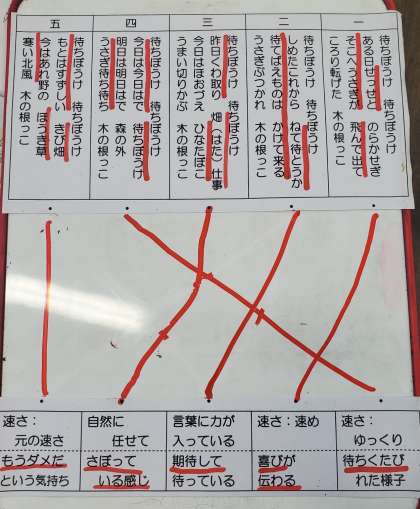 一
待ちぼうけ 待ちぼうけ
ある日せっせと のらかせぎ
そこへうさぎが 飛んで出て
ころり転げた 木の根っこ
二
待ちぼうけ 待ちぼうけ
しめたこれから ねて待とうか
待てばえものは かけて来る
うさぎぶつかれ 木の根っこ
三
待ちぼうけ 待ちぼうけ
昨日くわ取り 畑(はた)仕事
今日はほおづえ ひなたぼこ
うまい切りかぶ 木の根っこ
四
待ちぼうけ 待ちぼうけ
今日は今日はで 待ちぼうけ
明日は明日はで 森の外
うさぎ待ち待ち 木の根っこ
五
待ちぼうけ 待ちぼうけ
もとはすずしい きび畑
今はあれ野の ほうき草
寒い北風 木の根っこ
速さ:
ゆっくり
待ちくたび
れた様子
速さ:速め
喜びが
伝わる
言葉に力が
入っている
期待して
待っている
自然に
任せて
さぼって
いる感じ
速さ:
元の速さ
もうダメだ
という気持ち